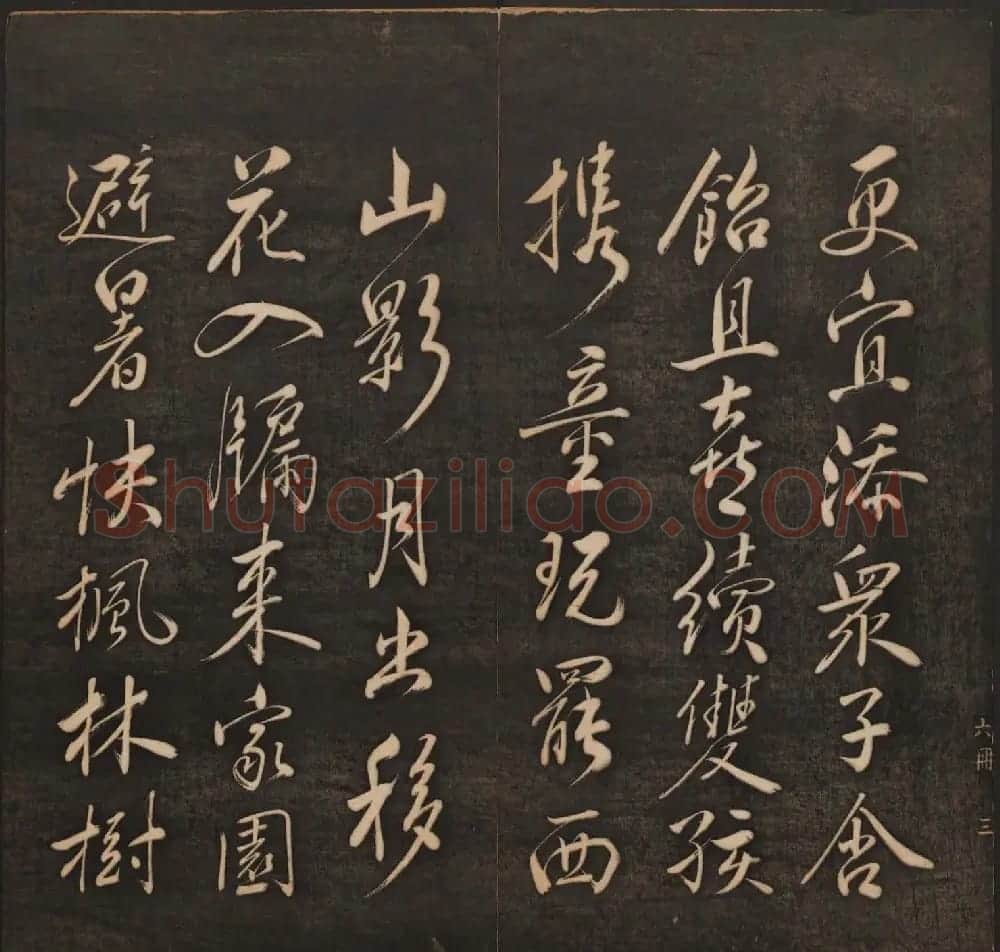 更宜添眾子含
飴且喜續雙孩
携童玩罷西
山影月出移
花入牖來家園
避暑快楓林樹
六冊 三
Shufaziliao.COM